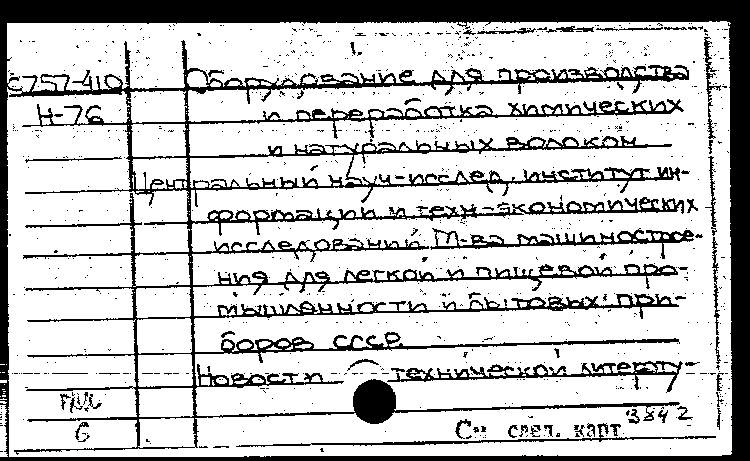 1.
С757-410 Оборудование для производства
Н-76 и переработка химических
и натуральных волокон
Центральный науч-исслед. институт ин-
формации и техн-экономических
исследований М-ва машиностро-
ния для легкой и пищевой про-
мышленности и бытовых при-
боров СССР.
Новости технической литерату-
6
3842
См след. карт